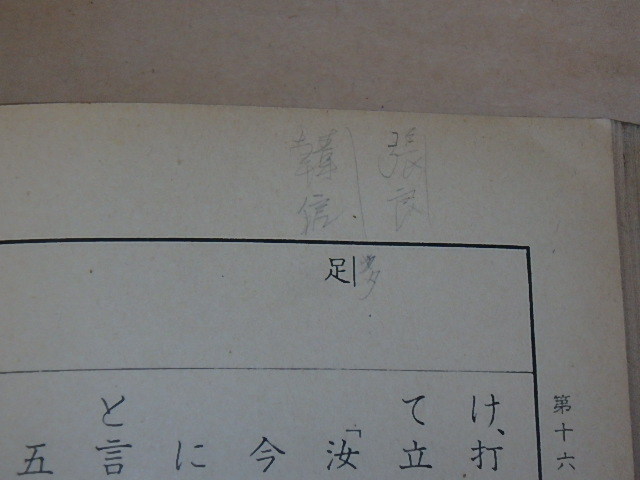 張良
韓信
足
第十六
け、打
て立
「汝
今
に
と言
五